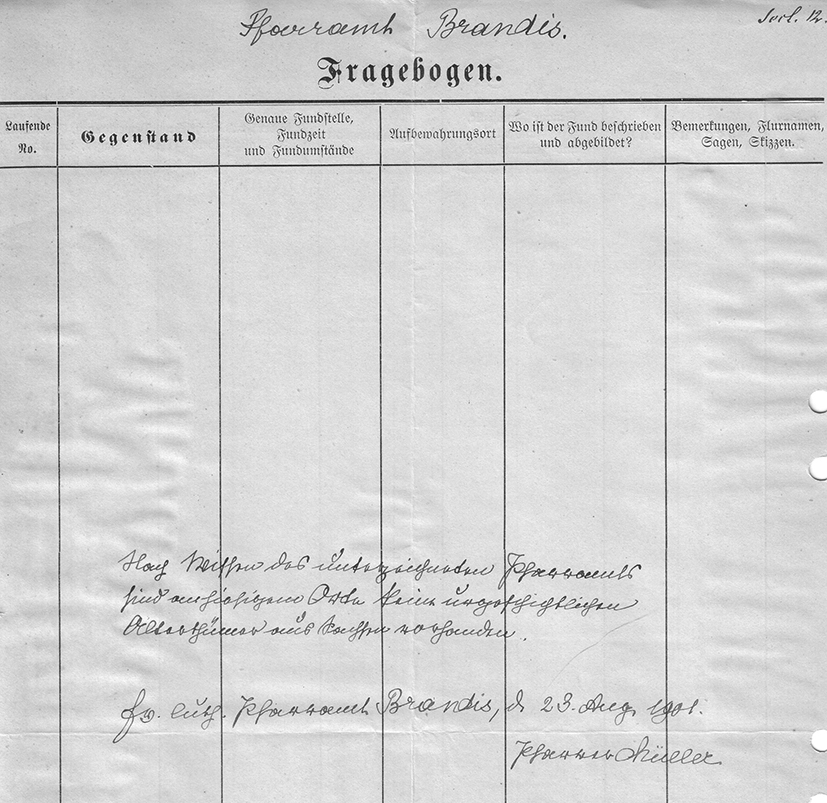 Pfarramt Brandis.
Fragebogen.
Laufende
No.
Gegenstand
Genaue Fundstelle,
Fundzeit
und Fundumstände
Aufbewahrungsort
Wo ist der Fund beschrieben
und abgebildet?
Bemerkungen, Flurnamen,
Sagen, Skizzen.
Nach Wissen des unterzeichneten Pfarramts
sind am hiesigen Orte keine urgeschichtlichen
Alterthümer aus Sachsen vorhanden.
Ev. luth. Pfarramt Brandis, d. 23. Aug. 1901.
Pfarrer Müller